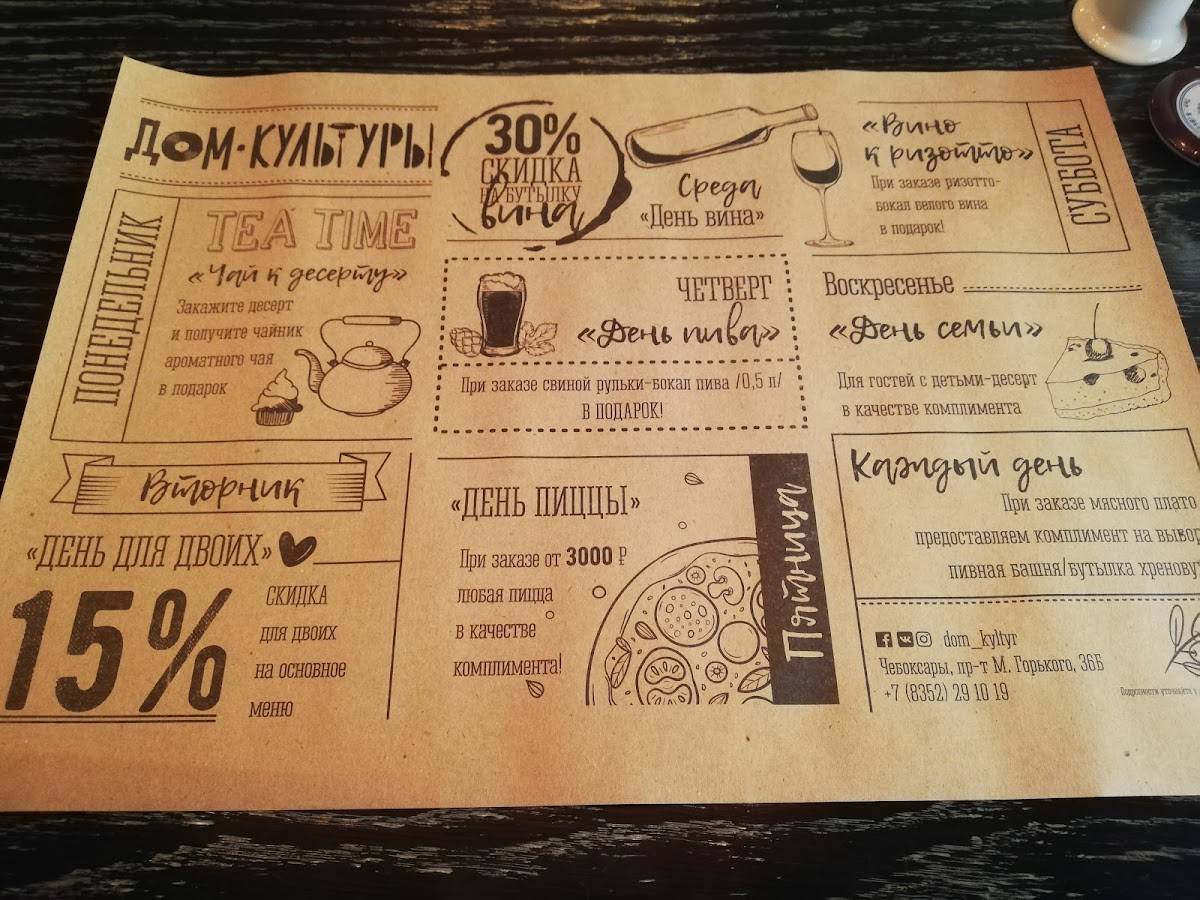 ДОМ·КУЛЬТУРЫ
ПОНЕДЕЛЬНИК
TEA TIME
«Чай к десерту»
Закажите десерт
и получите чайник
ароматного чая
в подарок
Вторник
«ДЕНЬ ДЛЯ ДВОИХ»
15%
СКИДКА
для двоих
на основное
меню
30%
СКИДКА
НА БУТЫЛКУ
вина
Среда
«День вина»
ЧЕТВЕРГ
«День пива»
При заказе свиной рульки-бокал пива /0,5 л/
В ПОДАРОК!
«ДЕНЬ ПИЦЦЫ»
При заказе от 3000 ₽
любая пицца
в качестве
комплимента!
Пятница
«Вино
к ризотто»
При заказе ризотто-
бокал белого вина
в подарок!
СУББОТА
Воскресенье
«День семьи»
Для гостей с детьми-десерт
в качестве комплимента
Каждый день
При заказе мясного плато
предоставляем комплимент на выбор
пивная башня/бутылка хренову
dom_kyltyr
Чебоксары, пр-т М. Горького, 36Б
+7 (8352) 29 10 19
Подробности уточняйте у